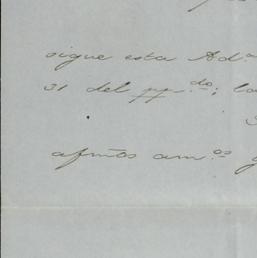 sigue esta Ad.ª
31 del pp.do;
afmos am.os